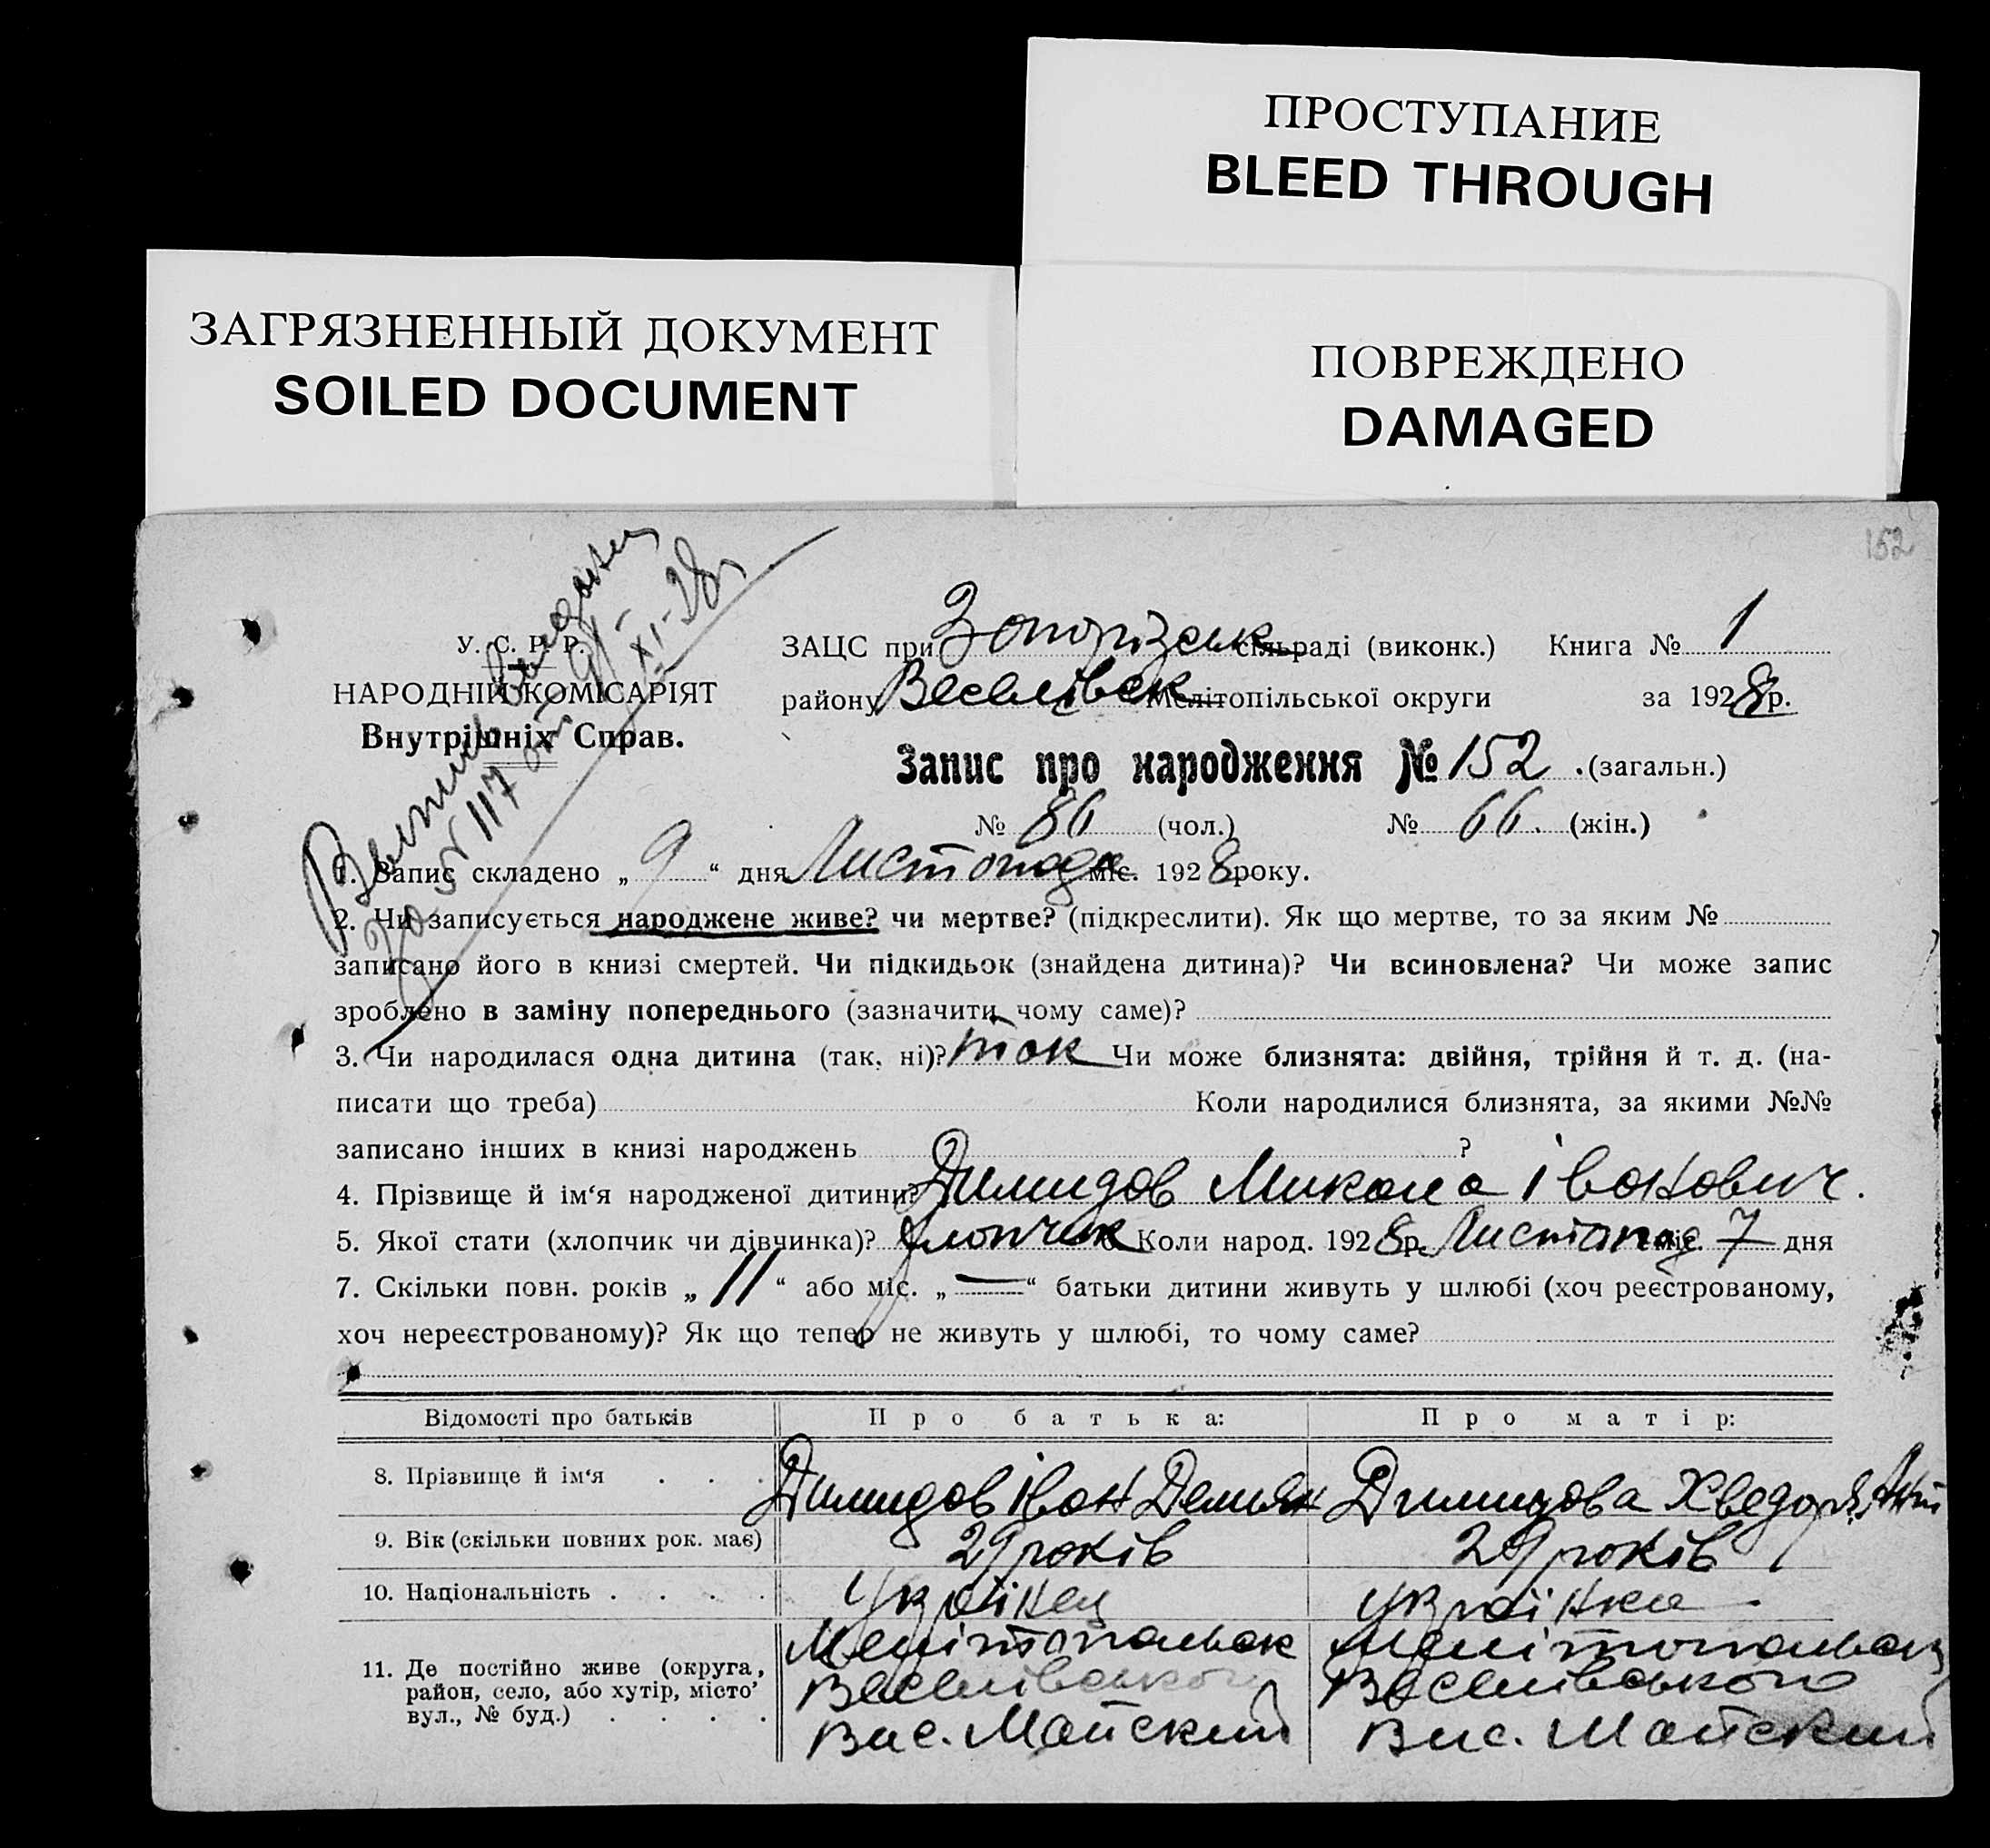 ПРОСТУПАНИЕ
BLEED THROUGH
ЗАГРЯЗНЕННЫЙ ДОКУМЕНТ
SOILED DOCUMENT
ПОВРЕЖДЕНО
DAMAGED
152
У. С. Р. Р.
НАРОДНІЙ КОМІСАРІЯТ
Внутрішніх Справ.
за № 117 от 9/XI-28
ЗАЦС при Запорізськ сільраді (виконк.) Книга № 1
району Веселівск Мелітопільської округи за 1928 р.
Запис про народження № 152 (загальн.)
№ 86 (чол.) № 66. (жін.)
1. Запис складено „ 9 “ дня Листопада міс. 1928 року.
2. Чи записується народжене живе? чи мертве? (підкреслити). Як що мертве, то за яким №
записано його в книзі смертей. Чи підкидьок (знайдена дитина)? Чи всиновлена? Чи може запис
зроблено в заміну попереднього (зазначити чому саме)?
3. Чи народилася одна дитина (так, ні)? так Чи може близнята: двійня, трійня й т. д. (на-
писати що треба) Коли народилися близнята, за якими №№
записано інших в книзі народжень ?
4. Прізвище й ім‘я народженої дитини? Димидов Микола Іванович.
5. Якої стати (хлопчик чи дівчинка)? хлопчик Коли народ. 1928 р. Листопад міс. 7 дня
7. Скільки повн. років „ 11 “ або міс. „ — “ батьки дитини живуть у шлюбі (хоч реєстрованому,
хоч нереєстрованому)? Як що тепер не живуть у шлюбі, то чому саме?
Відомості про батьків Про батька: Про матір:
8. Прізвище й ім‘я . . . Димидов Іван Демьян Димидова Хведора
9. Вік (скільки повних рок. має) 29 років 29 років
10. Національність . . . . Українец Українка
11. Де постійно живе (округа, район, село, або хутір, місто’ вул., № буд.) . . . .
Мелітопольск Мелітопольск
Веселівського Веселівського
Вис. Майский Вис. Майский